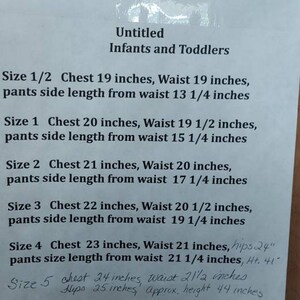 Untitled
Infants and Toddlers
Size 1/2 Chest 19 inches, Waist 19 inches,
pants side length from waist 13 1/4 inches
Size 1 Chest 20 inches, Waist 19 1/2 inches,
pants side length from waist 15 1/4 inches
Size 2 Chest 21 inches, Waist 20 inches,
pants side length from waist 17 1/4 inches
Size 3 Chest 22 inches, Waist 20 1/2 inches,
pants side length from waist 19 1/4 inches
Size 4 Chest 23 inches, Waist 21 inches, hips 24"
pants size length from waist 21 1/4 inches, Ht. 41"
Size 5 Chest 24 inches, Waist 21 1/2 inches
Hips 25 inches, approx. height 44 inches